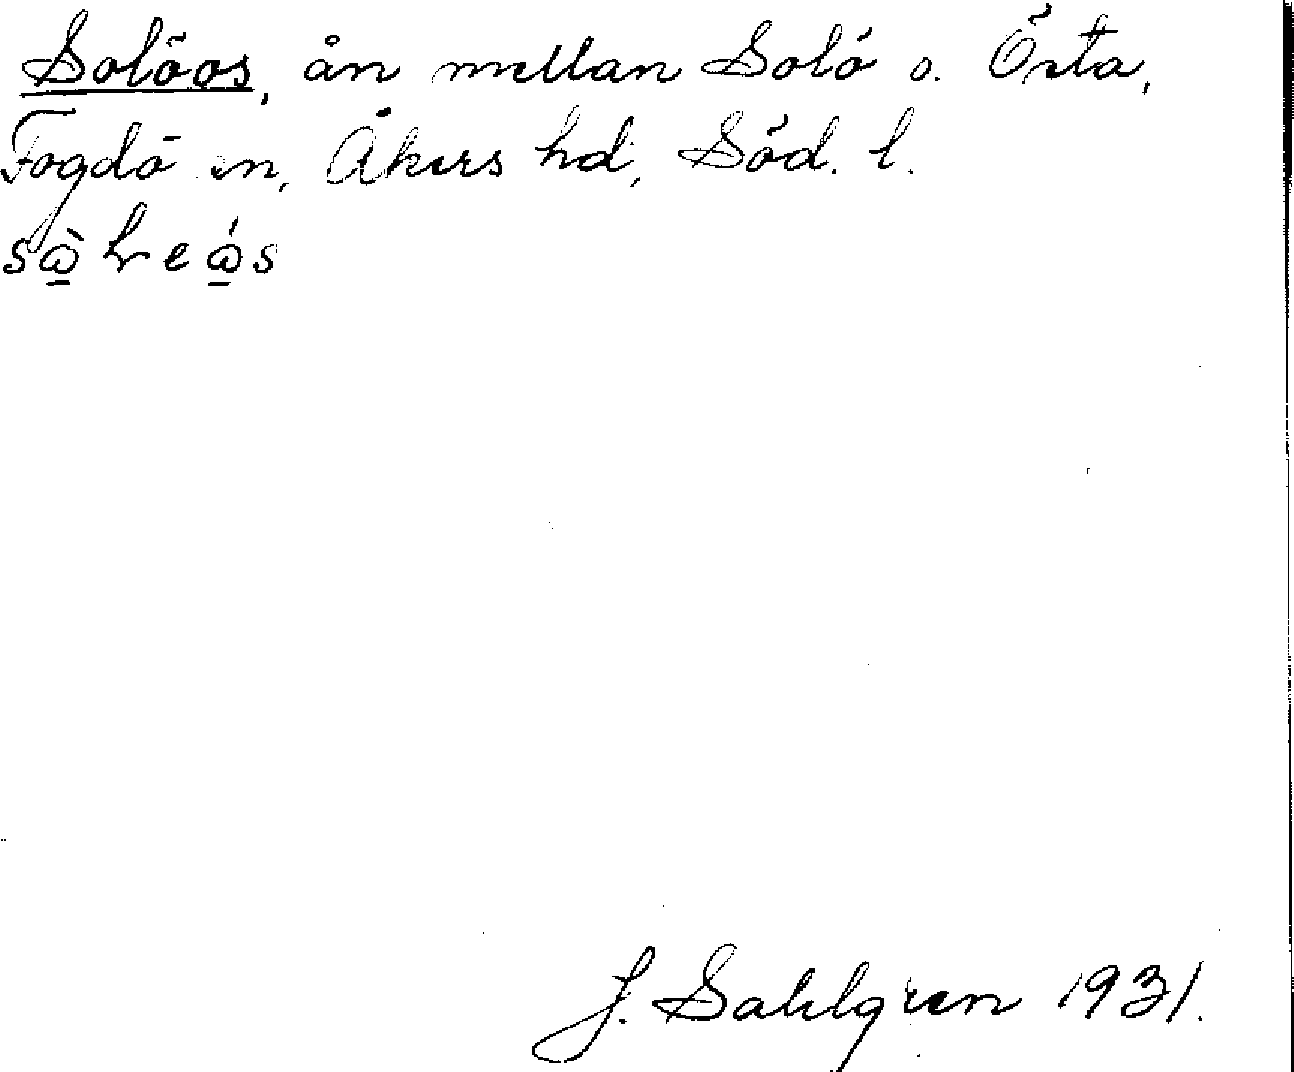 Solöos, ån mellan Solö o. Örta,
Fogdö sn, Åkers hd, Söd. l.
J. Sahlgren 1931.